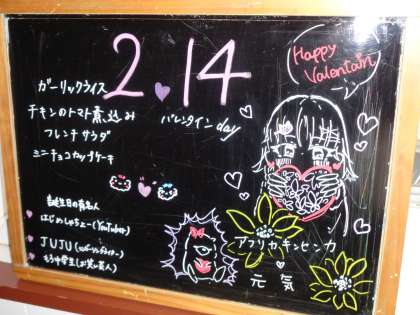 2.14
Happy
Valentain
ガーリックライス
チキンのトマト煮込み
フレンチサラダ
ミニチョコカップケーキ
バレンタインday
誕生日の有名人
はじめしゃちょー(YouTuber)
JUJU(シンガーソングライター)
もう中学生(お笑い芸人)
アフリカキンセンカ
元気